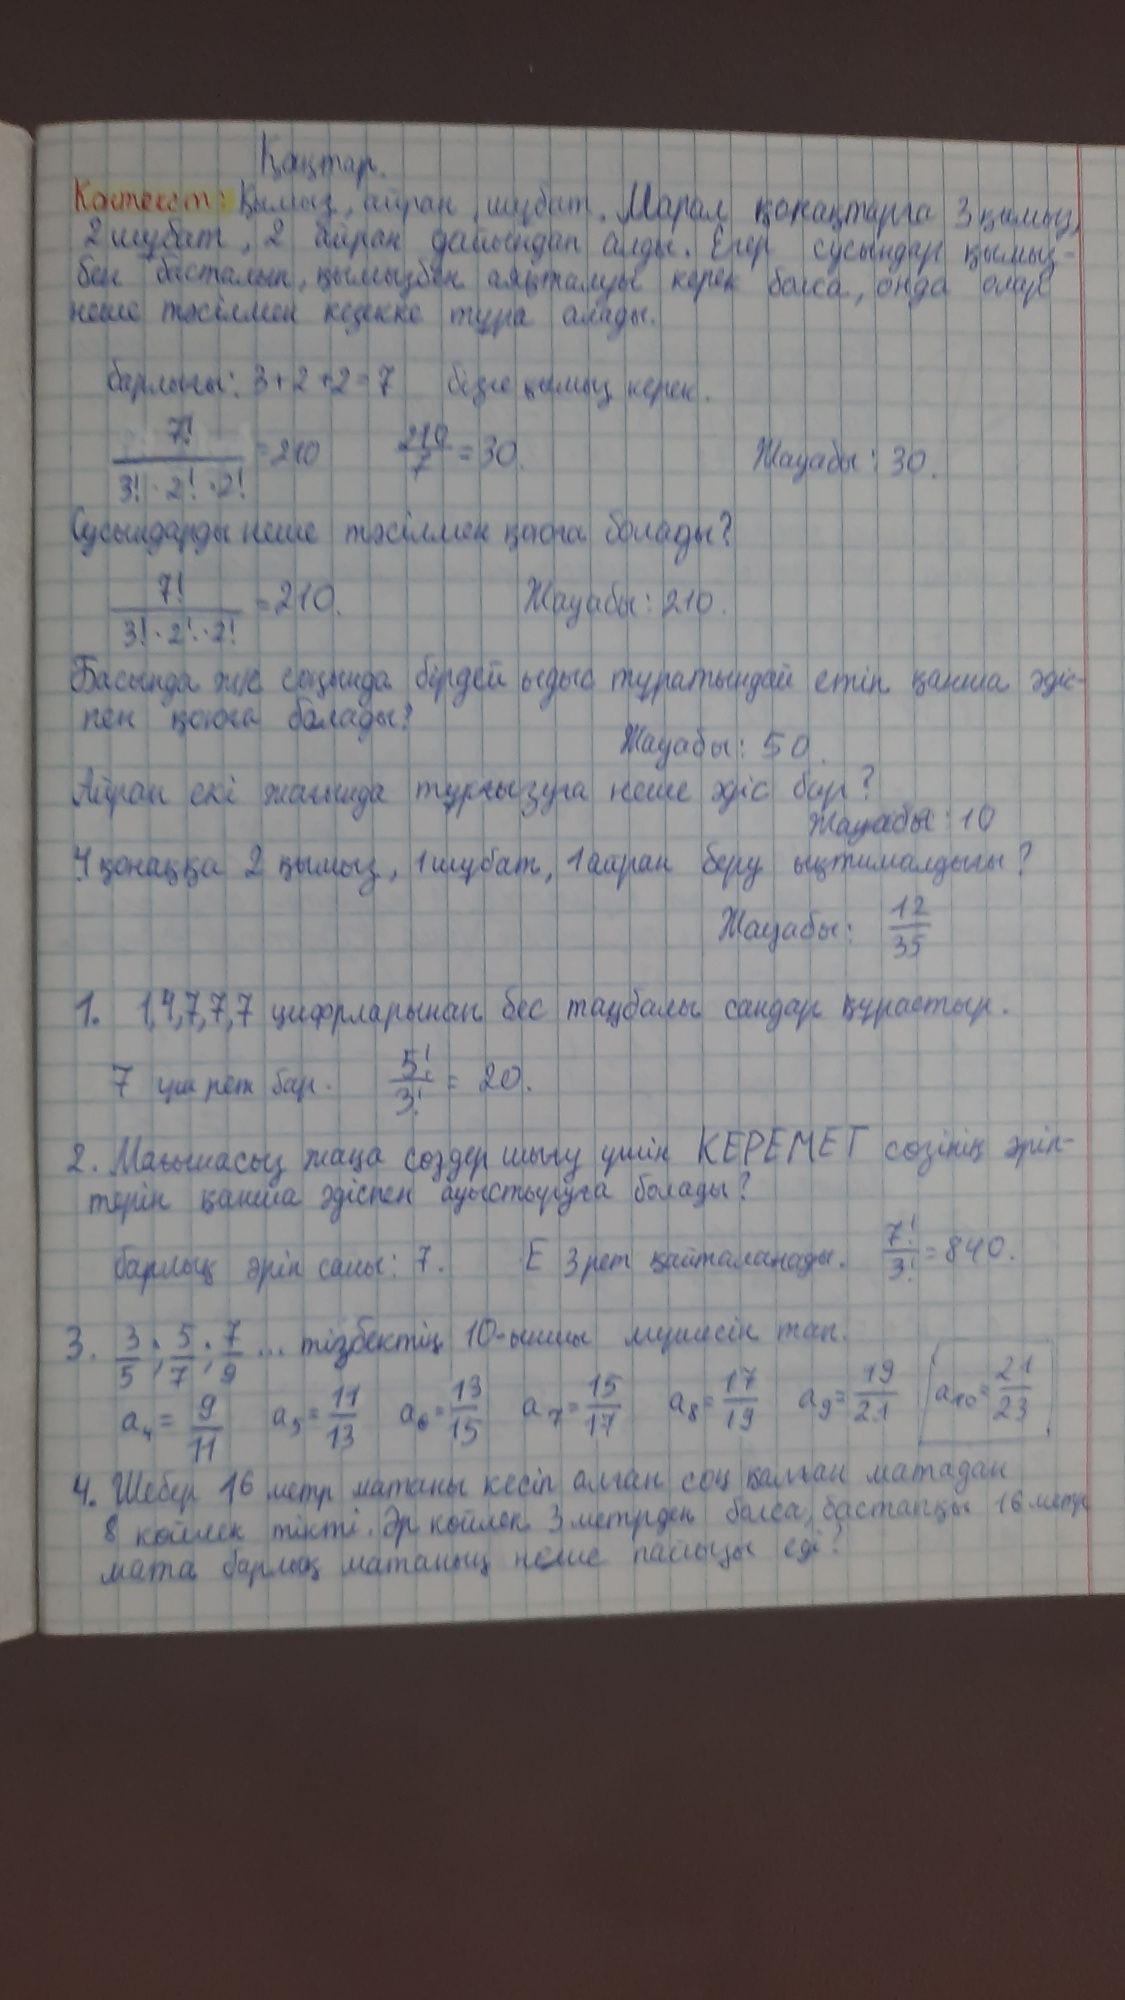 Қаңтар.
Контекст: Қымыз, айран, шұбат. Марал қонақтарға 3 қымыз,
2 шұбат, 2 айран дайындап алды. Егер сусындар қымыз-
бен басталып, қымызбен аяқталуы керек болса, онда олар
неше тәсілмен кезекке тұра алады.
барлығы: 3+2+2=7 бізге қымыз керек.
7!/(3!·2!·2!) = 210 210/7 = 30. Жауабы: 30.
Сусындарды неше тәсілмен қоюға болады?
7!/(3!·2!·2!) = 210. Жауабы: 210.
Басында және соңында бірдей ыдыс тұратындай етіп қанша әдіс-
пен қоюға болады?
Жауабы: 50.
Айран екі жағында тұрғызуға неше әдіс бар?
Жауабы: 10
4 қонаққа 2 қымыз, 1 шұбат, 1 айран беру ықтималдығы?
Жауабы: 12/35
1. 1,4,7,7,7 цифрларынан бес таңбалы сандар құрастыр.
7 үш рет бар. 5!/3! = 20.
2. Мағынасыз жаңа сөздер шығу үшін КЕРЕМЕТ сөзінің әріп-
терін қанша әдіспен ауыстыруға болады?
барлық әріп саны: 7. Е 3 рет қайталанады. 7!/3! = 840.
3. 3/5; 5/7; 7/9 ... тізбектің 10-ыншы мүшесін тап.
a₄ = 9/11 a₅ = 11/13 a₆ = 13/15 a₇ = 15/17 a₈ = 17/19 a₉ = 19/21 a₁₀ = 21/23
4. Шебер 16 метр матаны кесіп алған соң қалған матадан
8 көйлек тікті. Әр көйлек 3 метрден болса, бастапқы 16 метр
мата барлық матаның неше пайызы еді?